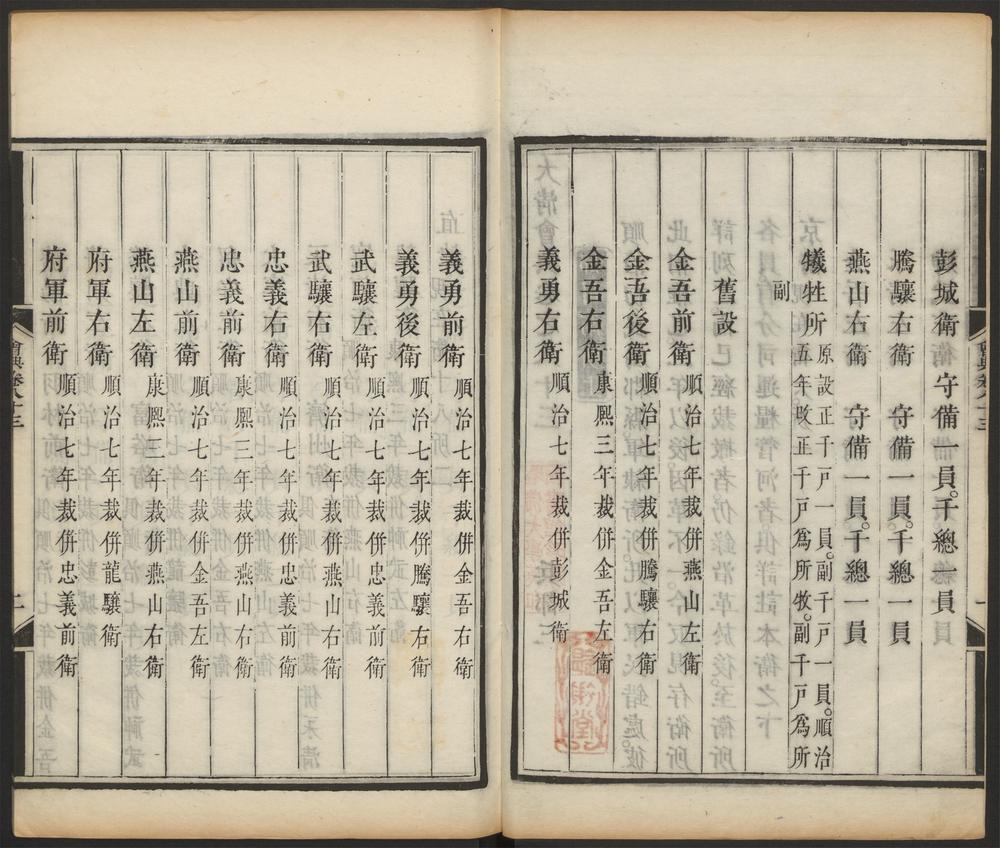 彭城衛 守備一員。千總一員
騰驤右衛 守備一員。千總一員
燕山右衛 守備一員。千總一員
犧牲所 原設正千戸一員。副千戸一員。順治
五年改正千戸為所牧。副千戸為所
副
舊設
金吾前衛 順治七年裁併燕山左衛
金吾後衛 順治七年裁併騰驤右衛
金吾右衛 康熙三年裁併金吾左衛
義勇右衛 順治七年裁併彭城衛
義勇前衛 順治七年裁併金吾右衛
義勇後衛 順治七年裁併騰驤右衛
武驤左衛 順治七年裁併忠義前衛
武驤右衛 順治七年裁併燕山右衛
忠義右衛 順治七年裁併忠義前衛
忠義前衛 康熙三年裁併燕山右衛
燕山前衛 順治七年裁併金吾左衛
燕山左衛 康熙三年裁併燕山右衛
府軍右衛 順治七年裁併龍驤衛
府軍前衛 順治七年裁併忠義前衛
會典卷八十三